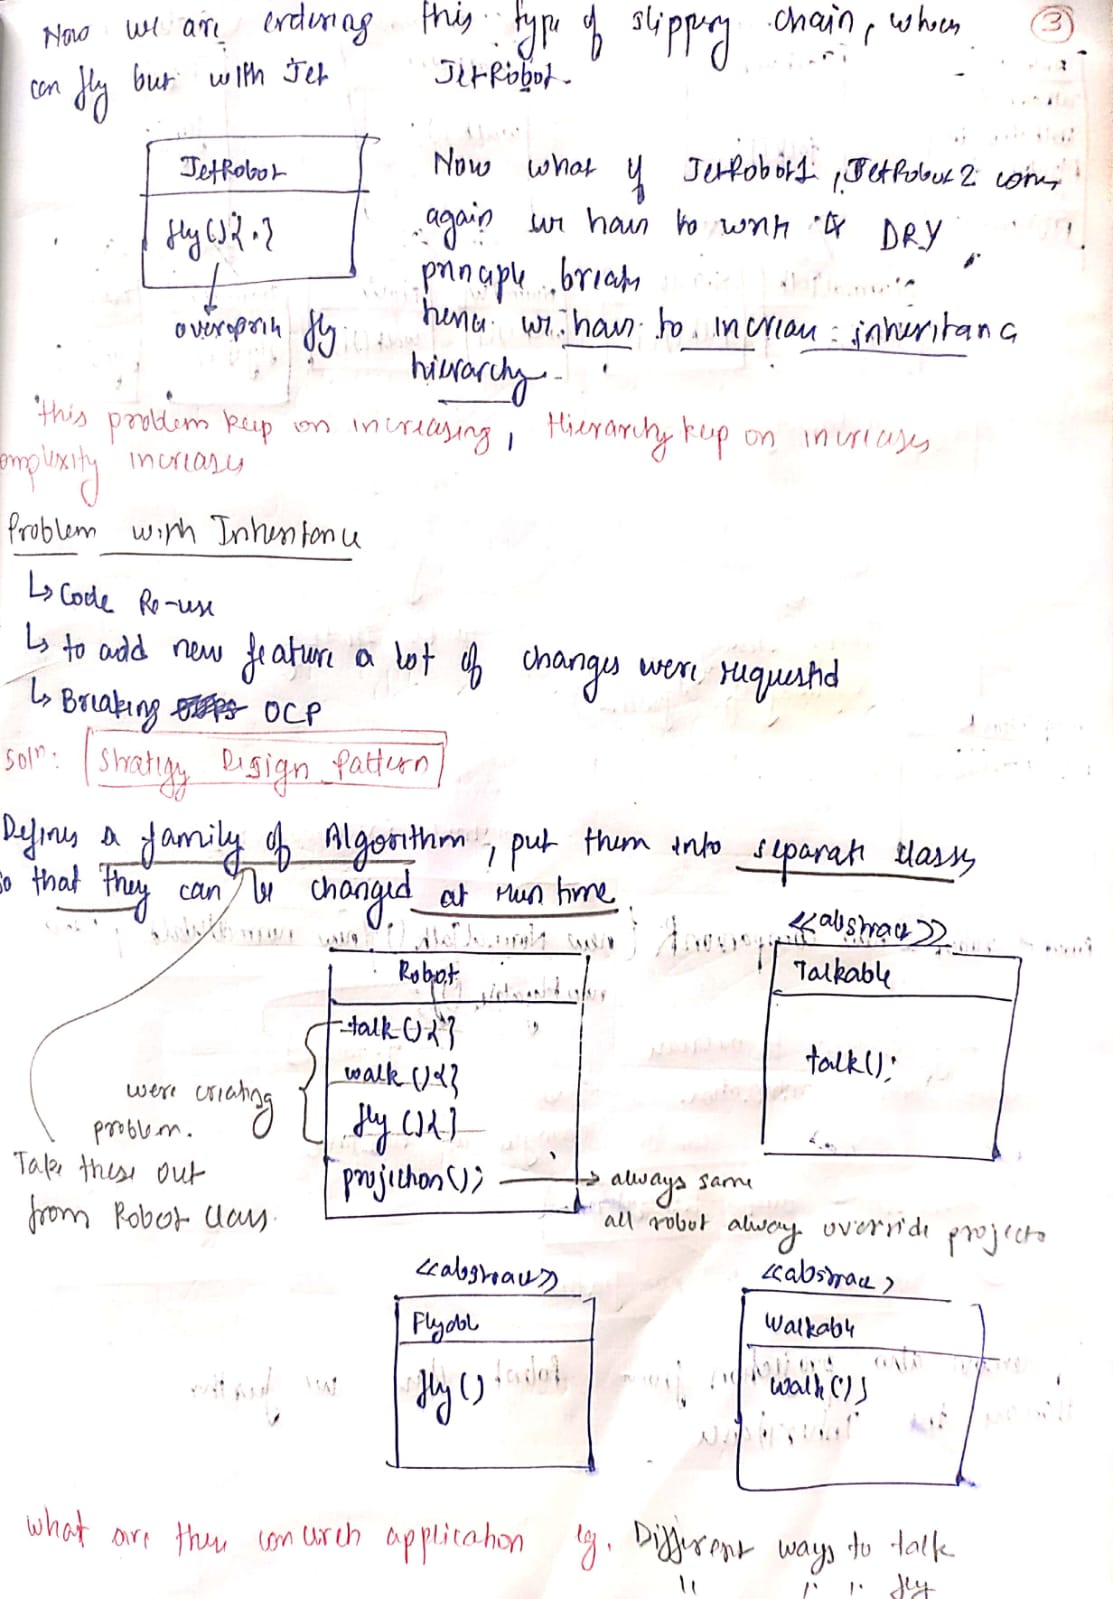 3
Now we are entering this type of slippery chain, when
can fly but with Jet JetRobot.
JetRobot
fly(){.}
override fly
Now what if JetRobot1, JetRobot2 come
again we have to write & DRY
principle breaks
hence we have to increase inheritance
hierarchy
this problem keep on increasing, Hierarchy keep on increases
complexity increases
Problem with Inheritance
↳ Code Re-use
↳ to add new feature a lot of changes were requested
↳ Breaking OCP
Soln: Strategy Design Pattern
Defines a family of Algorithm, put them into separate classes
so that they can be changed at run time
Robot
talk(){}
walk(){}
fly(){}
projection();
were creating
problem.
Take these out
from Robot class.
→ always same
all robot always override projecto
<<abstract>>
Talkable
talk();
<<abstract>>
Flyable
fly()
<<abstract>
Walkable
walk();
what are their concrete application eg. Different ways to talk
" " " fly